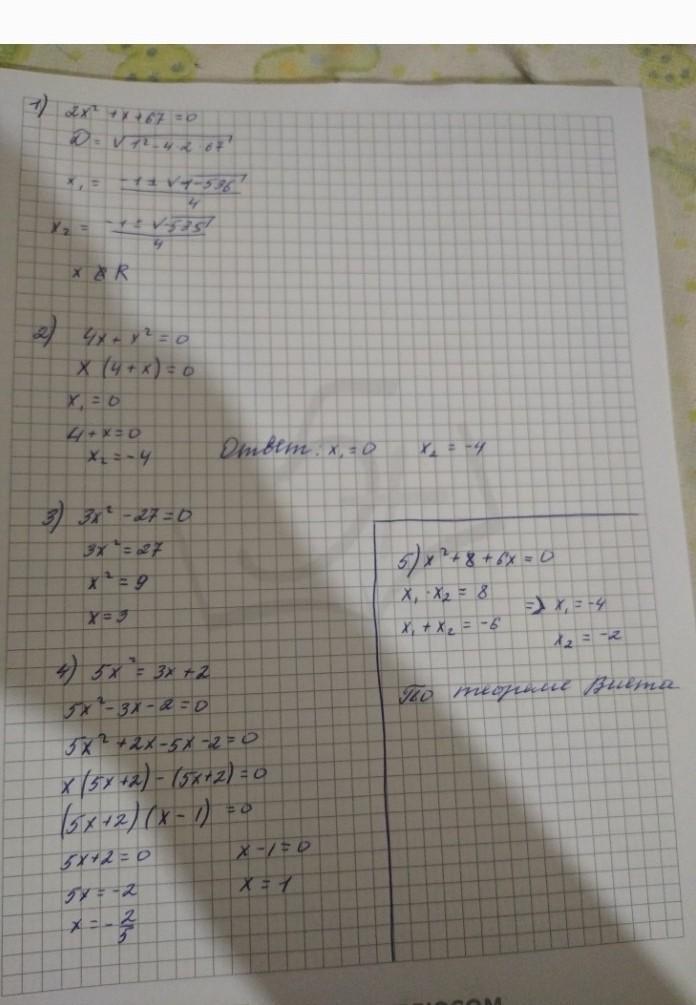 1) 2x² + x + 67 = 0
D = √1² - 4·2·67
x₁ = -1 ± √1-536 / 4
x₂ = -1 ± √-535 / 4
x R
2) 4x + x² = 0
x (4 + x) = 0
x₁ = 0
4 + x = 0
x₂ = -4
Ответ: x₁ = 0 x₂ = -4
3) 3x² - 27 = 0
3x² = 27
x² = 9
x = 3
4) 5x² = 3x + 2
5x² - 3x - 2 = 0
5x² + 2x - 5x - 2 = 0
x (5x + 2) - (5x + 2) = 0
(5x + 2) (x - 1) = 0
5x + 2 = 0 x - 1 = 0
5x = -2 x = 1
x = -2/5
5) x² + 8 + 6x = 0
x₁ · x₂ = 8
x₁ + x₂ = -6
=> x₁ = -4
x₂ = -2
По теореме Виета